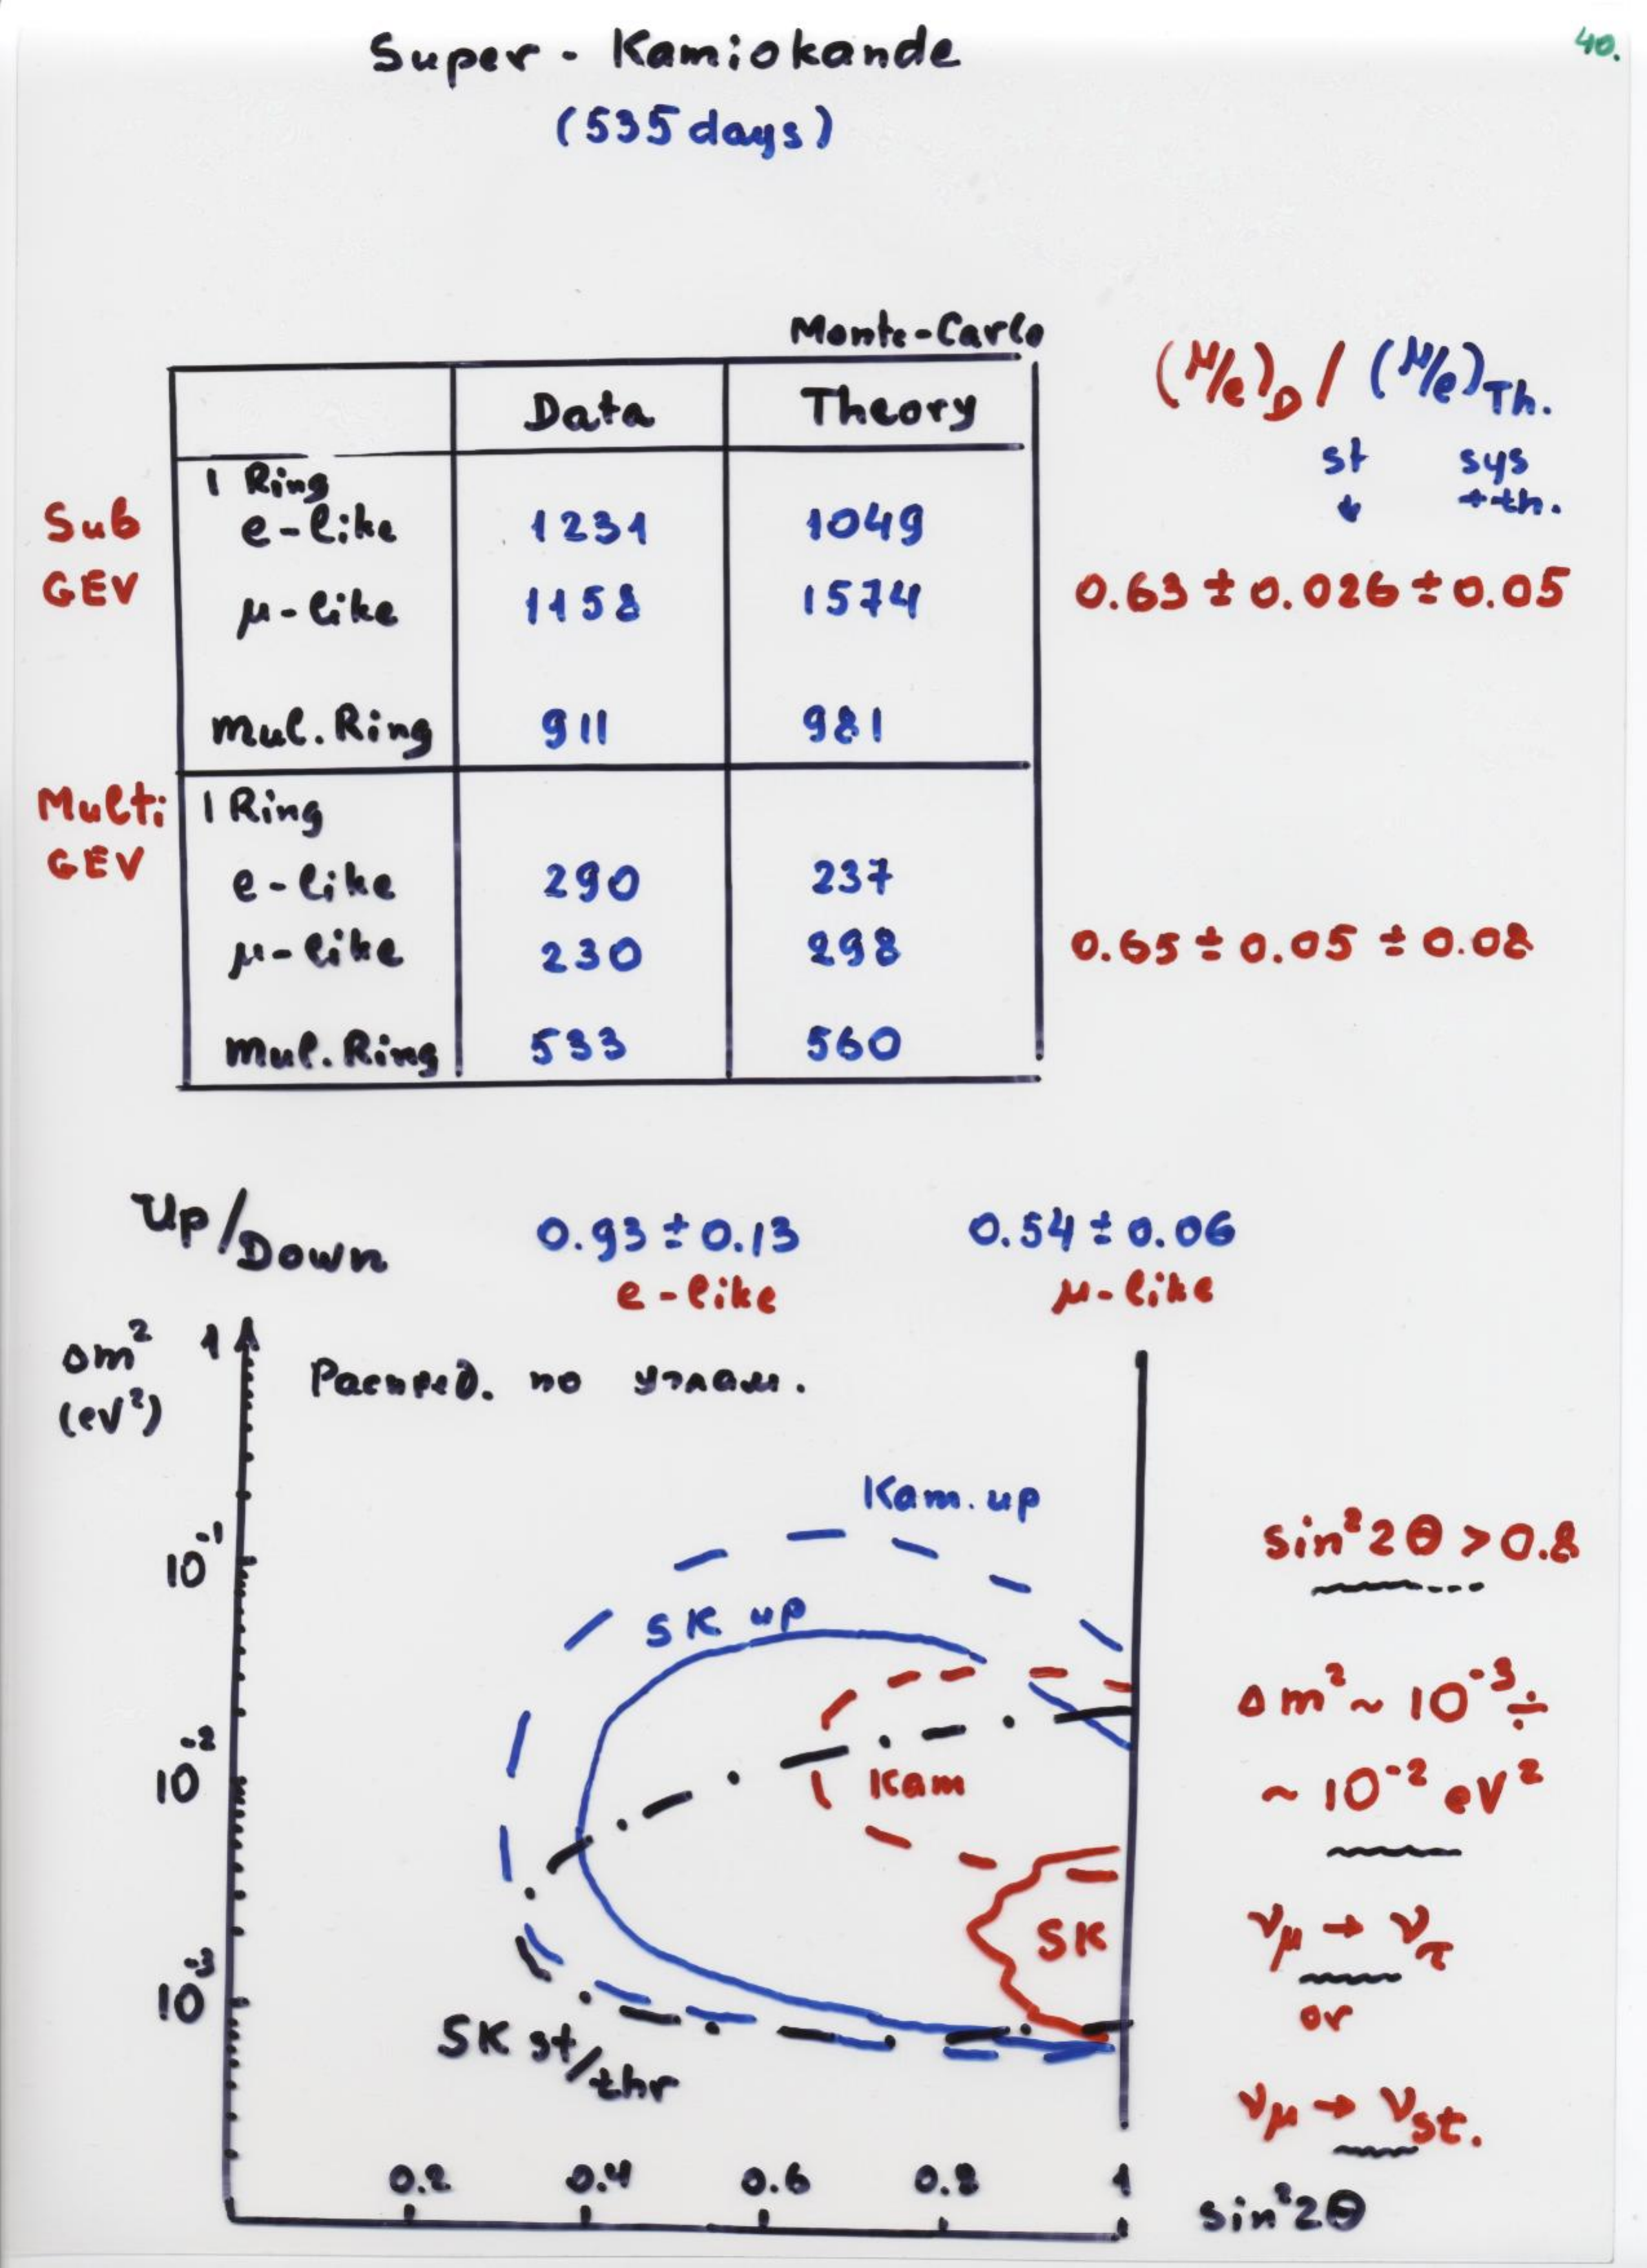 40.
Super - Kamiokande
(535 days)
Monte-Carlo
Data Theory
(μ/e)D / (μ/e)Th.
st sys
↓ +th.
Sub
GEV
1 Ring
e-like 1231 1049
μ-like 1158 1574
0.63 ± 0.026 ± 0.05
Mul. Ring 911 981
Multi
GEV
1 Ring
e-like 290 237
μ-like 230 298
0.65 ± 0.05 ± 0.08
Mul. Ring 533 560
Up/Down 0.93 ± 0.13 0.54 ± 0.06
e-like μ-like
Δm² 1
(eV²)
Распред. по углам.
Kam. up
10⁻¹
SK up
10⁻²
Kam
SK
10⁻³
SK st/thr
0.2 0.4 0.6 0.8 1
sin²2θ
sin²2θ > 0.8
Δm² ~ 10⁻³ ÷
~ 10⁻² eV²
νμ → ντ
or
νμ → νst.